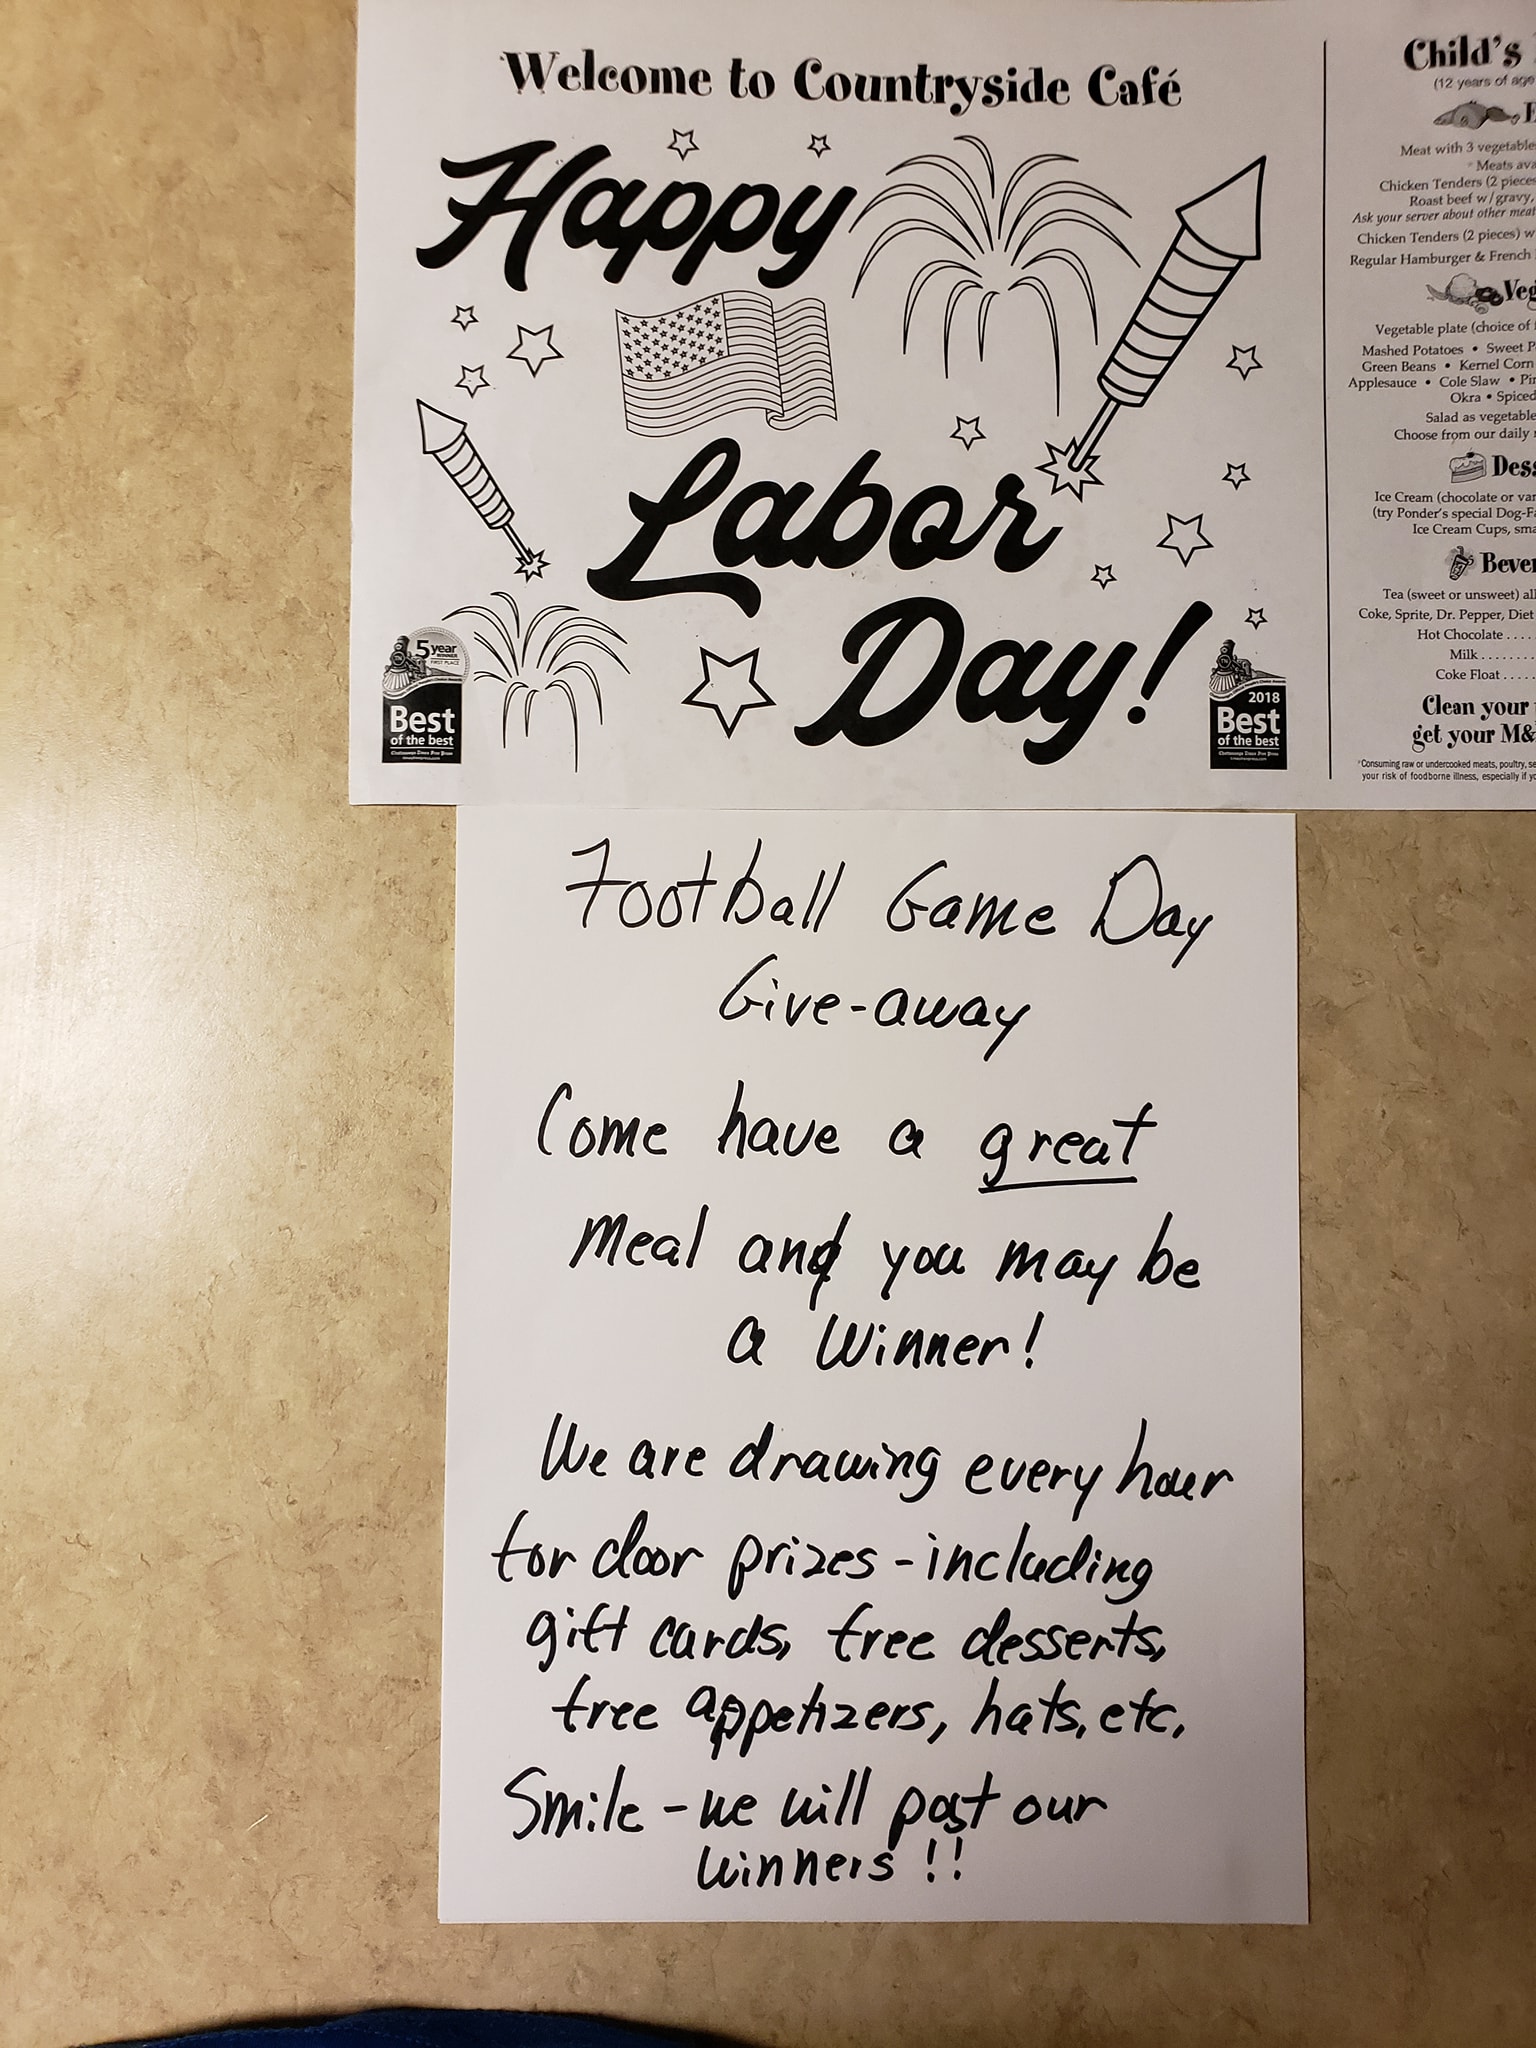 Welcome to Countryside Café
Happy
Labor
Day!
5 year
WINNER
FIRST PLACE
Best
of the best
Chattanooga Times Free Press
2018
Best
of the best
Chattanooga Times Free Press
Child's
(12 years of age
Meat with 3 vegetable
Meats ava
Chicken Tenders (2 pieces
Roast beef w/gravy,
Ask your server about other meat
Chicken Tenders (2 pieces) w
Regular Hamburger & French
Veg
Vegetable plate (choice of
Mashed Potatoes • Sweet P
Green Beans • Kernel Corn
Applesauce • Cole Slaw • Pin
Okra • Spiced
Salad as vegetable
Choose from our daily
Dess
Ice Cream (chocolate or van
(try Ponder's special Dog-Fa
Ice Cream Cups, sma
Bever
Tea (sweet or unsweet) all
Coke, Sprite, Dr. Pepper, Diet
Hot Chocolate . . . .
Milk . . . . . . . .
Coke Float . . . . .
Clean your
get your M&
*Consuming raw or undercooked meats, poultry, se
your risk of foodborne illness, especially if yo
Football Game Day
Give-away
Come have a great
Meal and you may be
a Winner!
We are drawing every hour
for door prizes - including
gift cards, free desserts,
free appetizers, hats, etc.
Smile - we will post our
winners!!